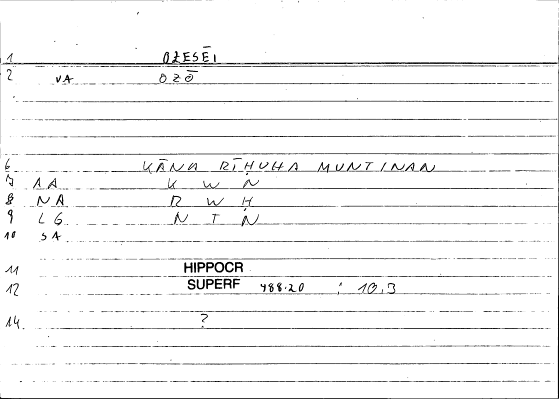 1 OZESĒI
2 VA OZŌ
6 KĀNA RĪḤUHA MUNTINAN
7 AA K W N
8 NA R W Ḥ
9 LG N T N
10 SA
11 HIPPOCR
12 SUPERF 488.20 : 10.3
14 ?